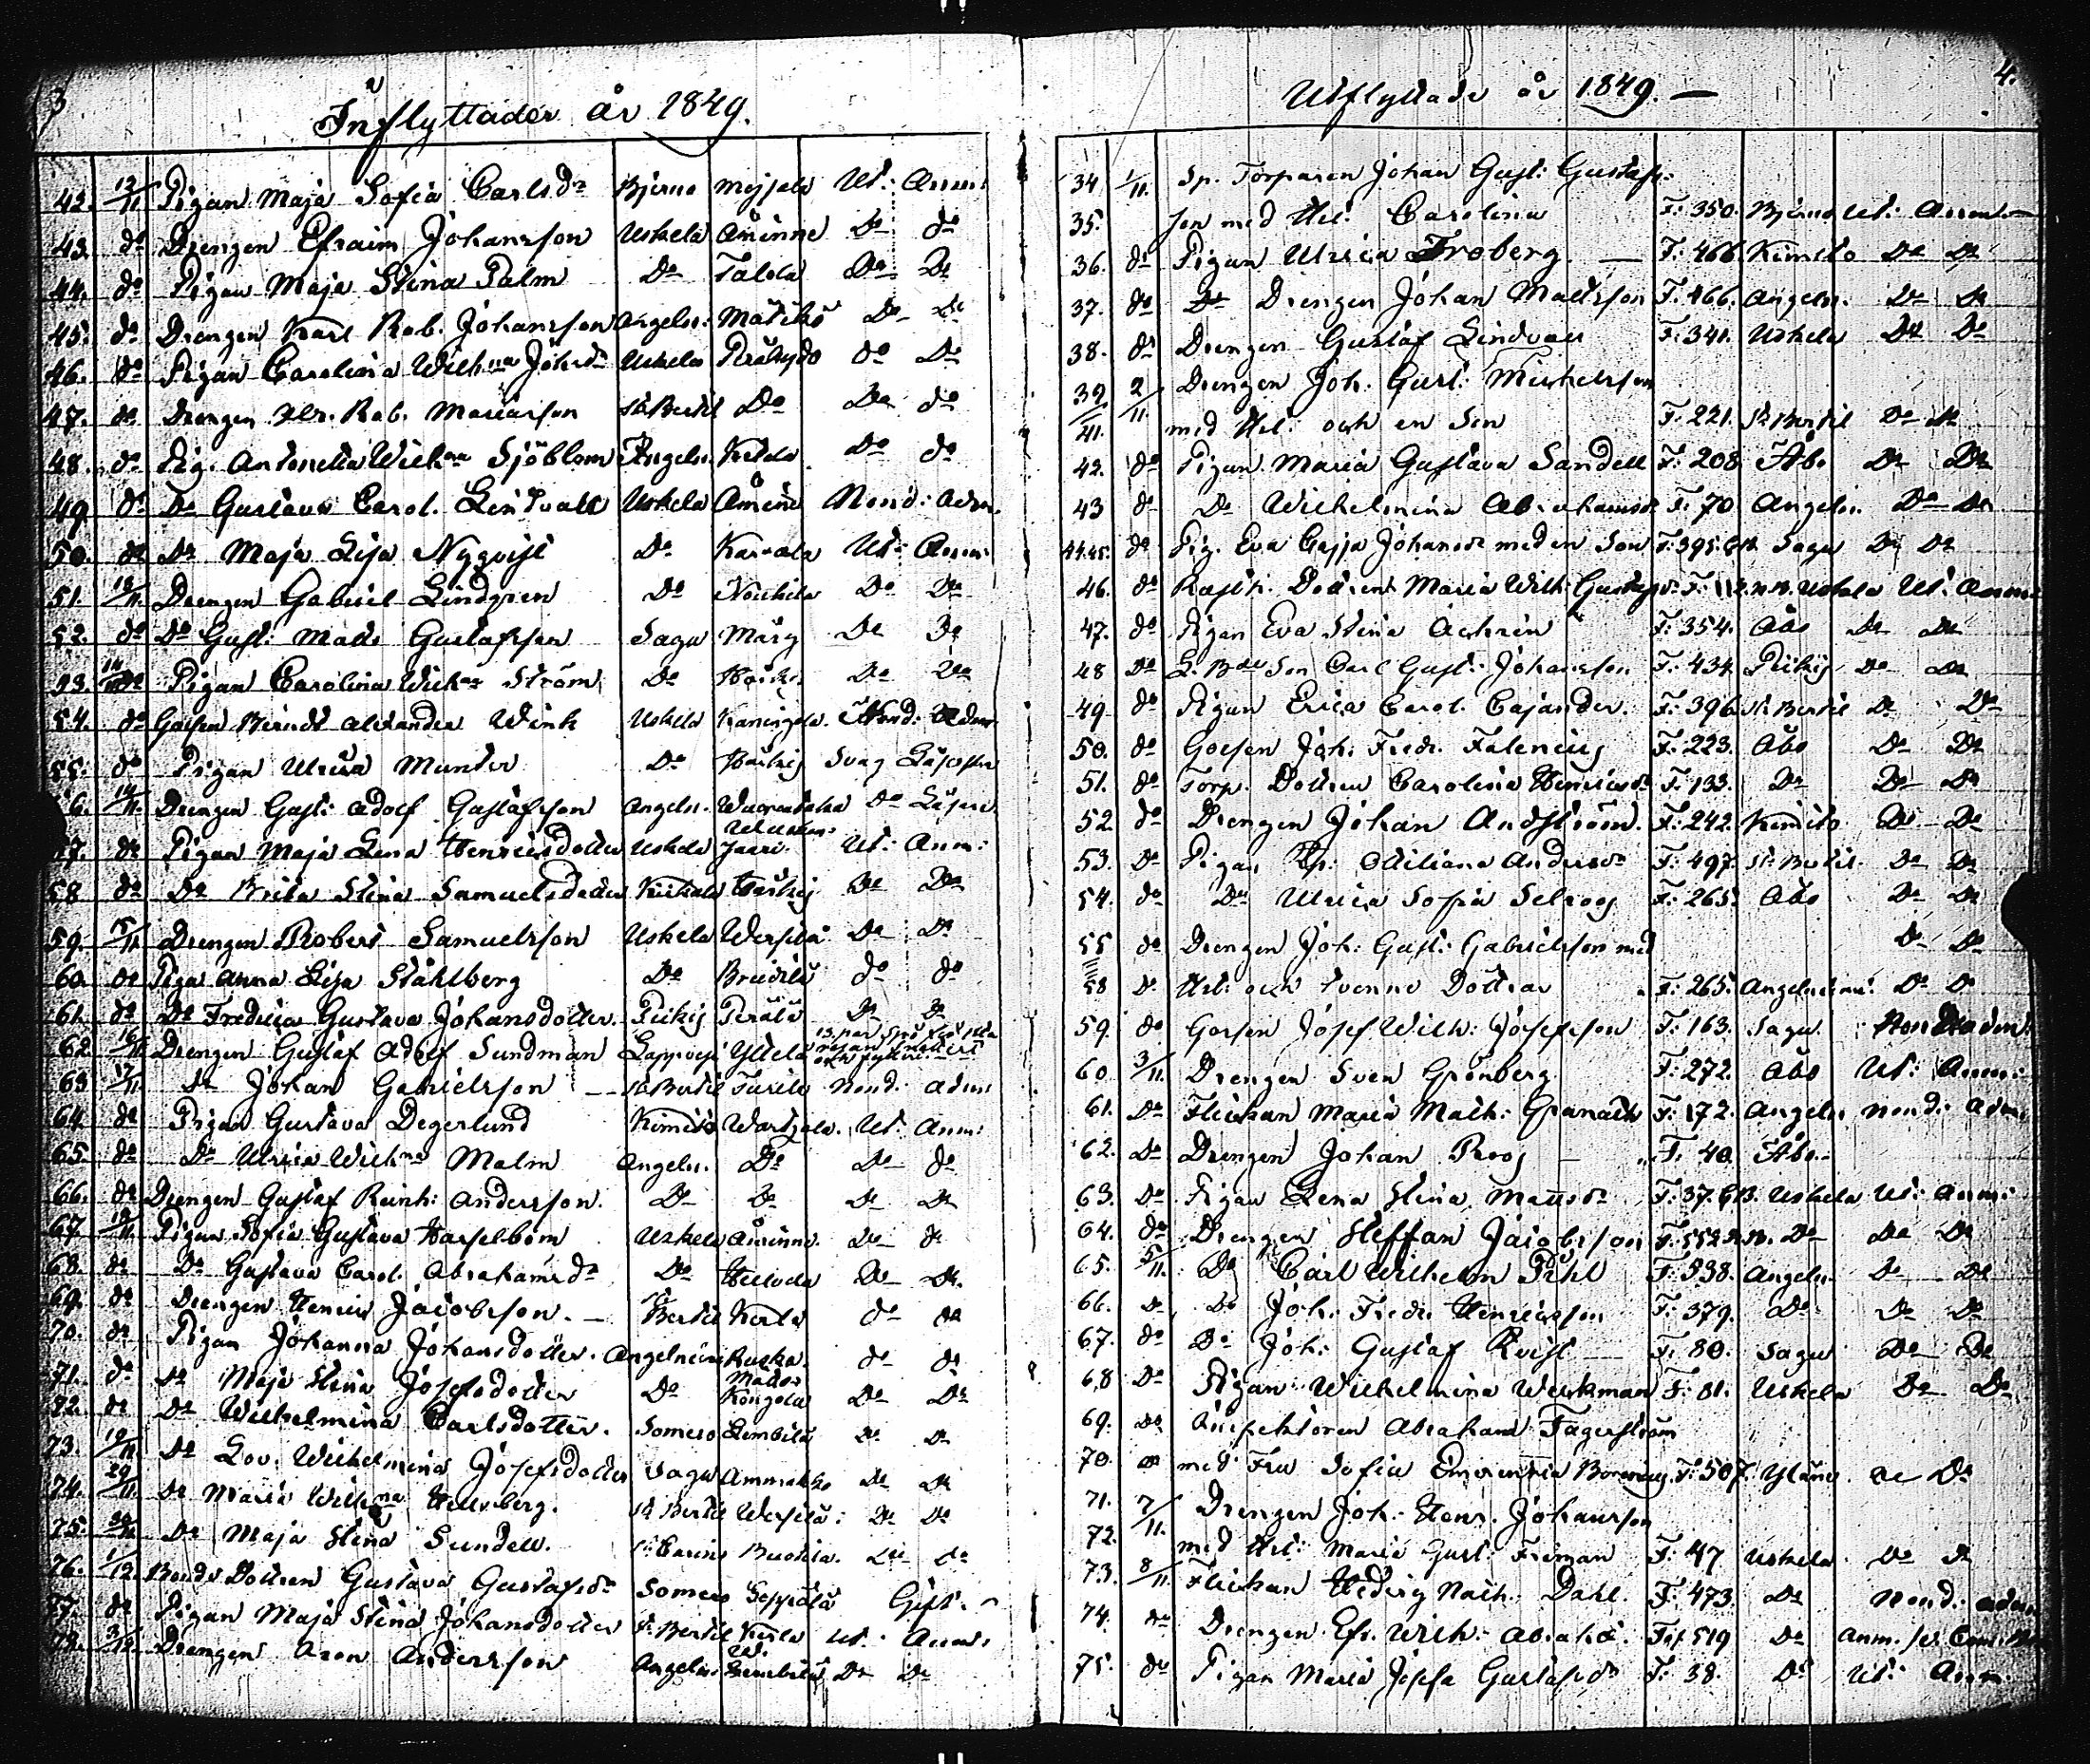 3
Inflyttader år 1849.
42. 12/11 Pigan Maja Sofia Carlsdr Bjerno Ut: Anm:
43. do Drengen Efraim Johansson Uskela Åminne Do do
44. do Pigan Maja Stina Palm Do Talola Do Do
45. do Drengen Karl Rob. Johansson Angeln: Mätikö Do Do
46. do Pigan Carolina Wilhna Johsdr Uskela do Do
47. do Drengen Rob. St Bertil Do Do do
48. do Pig. Antonetta Wilhna Sjöblom Angeln. Ketola Do do
49 do Do Gustava Carol. Lindvall Uskela Åminne Nond: adm.
50. do Do Maja Lisa Nyqvist Do Karvala Ut: Anm:
51. 13/11. Drengen Gabriel Lindgren Do Do Do
52. do Do Gust: Mats Gustafsson Sagu Märy Do Do
53. 14/11 do Pigan Carolina Wilhna Ström Do Do Do
54. do Gossen Berndt Alexander Wink Uskela Kaningola. Nond: Adm
55. do Pigan Ulrica Munter Do Svag
56. 14/11. Drengen Gust: Adolf Gustafsson Angeln. Do
57. do Pigan Maja Lena Henricsdotter Uskela Ut: Anm:
58 do Do Brita Stina Samuelsdotter Do Do
59. 15/11 Drengen Robert Samuelsson Uskela Do Do
60. do Piga Anna Lisa Ståhlberg Do do do
61. do Do Fredrica Gustava Johansdotter. Pikis Peräle Do Do
62 16/11 Drengen Gustaf Adolf Sundman Yltelä
63 17/11. Do Johan Gabrielsson — St Bertil Nond. adm
64 do Pigan Gustava Degerlund Kimito Ut. Anm:
65. do Do Ulrica Wilhna Malm Angeln. Do Do do
66. do Drengen Gustaf Reinh: Andersson. Do Do Do Do
67 18/11. Pigan Sofia Gustava Hasselbom Uskela Åminne Do do
68. do Do Gustava Carol. Abrahamsdr Do Do Do.
69. do Drengen Henric Jacobsson. — St Bertil Kerla do do
70. do Pigan Johanna Johansdotter. Angelniemi do do
71. do Do Maja Stina Josefsdotter Do Do Do
72. do Do Wilhelmina Carlsdotter. Somero Do Do
73. 19/11 Do Lov. Wilhelmina Josefsdotter Sagu Ammakko Do Do
74. 29/11. Do Maria Wilhna Hellsberg. St Bertil Do Do
75. Do Maja Stina Sundell. Do do
76. 1/12. Bonde Dottren Gustava Gustafsdr Somero Seppälä Gift.
77. do Pigan Maja Stina Johansdotter St Bertil Kerla Ut. Anm.
78. 3/12. Drengen Aron Andersson Angeln. Do Do
4.
Utflyttade år 1849. —
34 1/11. Sp. Torparen Johan Gust: Gustafs-
35. son med Hst: Carolina F: 350. Bjerno Ut: Anm:
36. do Pigan Ulrica Froberg. — F: 466. Kimito Do Do
37. do Do Drengen Johan Mattsson F: 466. Angeln. Do Do
38. do Drengen Gustaf Lindvall F: 341. Uskela Do Do
39. 2/11. Drengen Joh. Gust: Mickelsson
41. med Hst: och en Son F: 221. St Bertil Do Do
42. do Pigan Maria Gustava Sandell F: 208 Åbo Do Do
43 do Do Wilhelmina Abrahamsdr F: 70 Angeln. Do Do
44.45. do Pig. Eva Cajsa Johansdr med en Son F: 395. Sagu Do Do
46. do Dottren Maria Wilh: Gustafsdr F: Uskela Ut: Anm:
47. do Pigan Eva Stina F: 354. Åbo Do Do
48 Do Son Carl Gust: Johansson F: 434 Pikis Do Do
49 do Pigan Erica Carol. Cajander. F: 396 St Bertil Do Do
50. do Gossen Joh. Fredr. Falenius F: 223. Åbo Do Do
51. do Torp. Dottren Carolina Henricsdr F: 133. Do Do Do
52. do Drengen Johan Andström. F: 242. Kimito Do Do
53. Do Pigan Otiliana Andersdr F: 497 St Bertil. Do Do
54. do Do Ulrica Sofia Selroos F: 265. Åbo Do Do
55 do Drengen Joh: Gust: Gabrielsson med Do Do
58 do Hst: och tvenne Döttrar F: 265. Angelniemi. Do Do
59. do Gossen Josef Wilh: Josefsson F: 163. Sagu. Nond adm.
60 3/11. Drengen Sven Grönberg F: 272. Åbo Ut: Anm:
61. Do Flickan Maria Math: Granath F: 172. Angeln Nond: adm.
62. Do Drengen Johan Roos — F. 40. Åbo.
63. Do Pigan Lena Stina Mattsdr F: 37. Uskela Ut: Anm:
64. do Drengen Steffan Jacobsson F: 552 Do Do Do
65. 5/11. Do Carl Wilhelm Pihl F: 538. Angeln Do Do
66. Do Do Joh. Fredr. Henricsson F: 379. Do Do Do
67. do Do Joh: Gustaf Kvist — F: 80. Sagu Do Do
68 Do Pigan Wilhelmina Werkman F: 81. Uskela Do Do
69. Do Inspektoren Abraham Fagerström
70. med Fru Sofia Borenius F: 507. Yläne Do
71. 7/11. Drengen Joh: Henr. Johansson
72. med Hst: Maria Gust: Friman F: 47 Uskela Do Do
73. 8/11. Flickan Hedvig Math. Dahl. F: 473. Do Nond: adm
74. do Drengen Efr. Wilh: F: 519 Do Anm.
75. do Pigan Maria Josefa Gustafsdr F: 38. Do Ut: Anm.